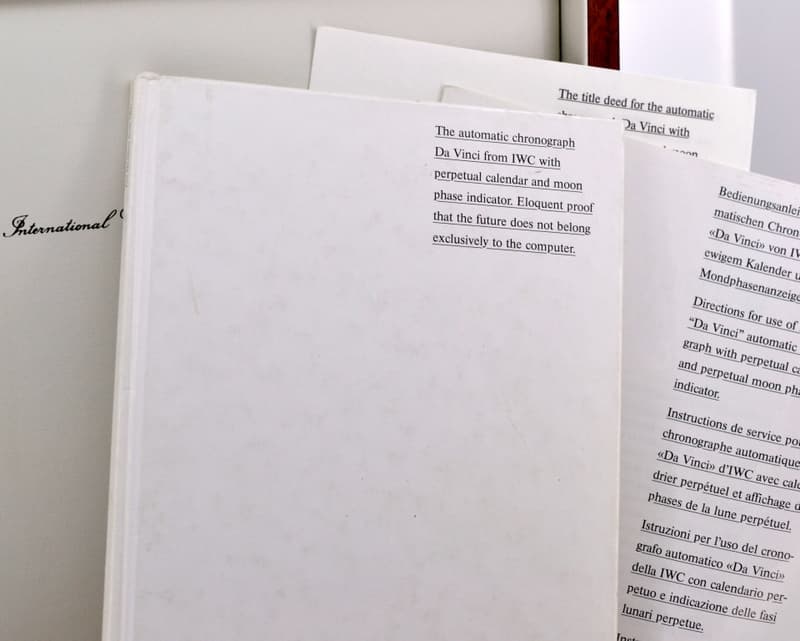 International
The automatic chronograph
Da Vinci from IWC with
perpetual calendar and moon
phase indicator. Eloquent proof
that the future does not belong
exclusively to the computer.
The title deed for the automatic
Da Vinci with
Bedienungsanlei
matischen Chron
«Da Vinci» von IW
ewigem Kalender u
Mondphasenanzeige
Directions for use of
“Da Vinci” automatic
graph with perpetual ca
and perpetual moon pha
indicator.
Instructions de service pou
chronographe automatique
«Da Vinci» d’IWC avec cale
drier perpétuel et affichage d
phases de la lune perpétuel.
Istruzioni per l’uso del crono-
grafo automatico «Da Vinci»
della IWC con calendario per-
petuo e indicazione delle fasi
lunari perpetue.